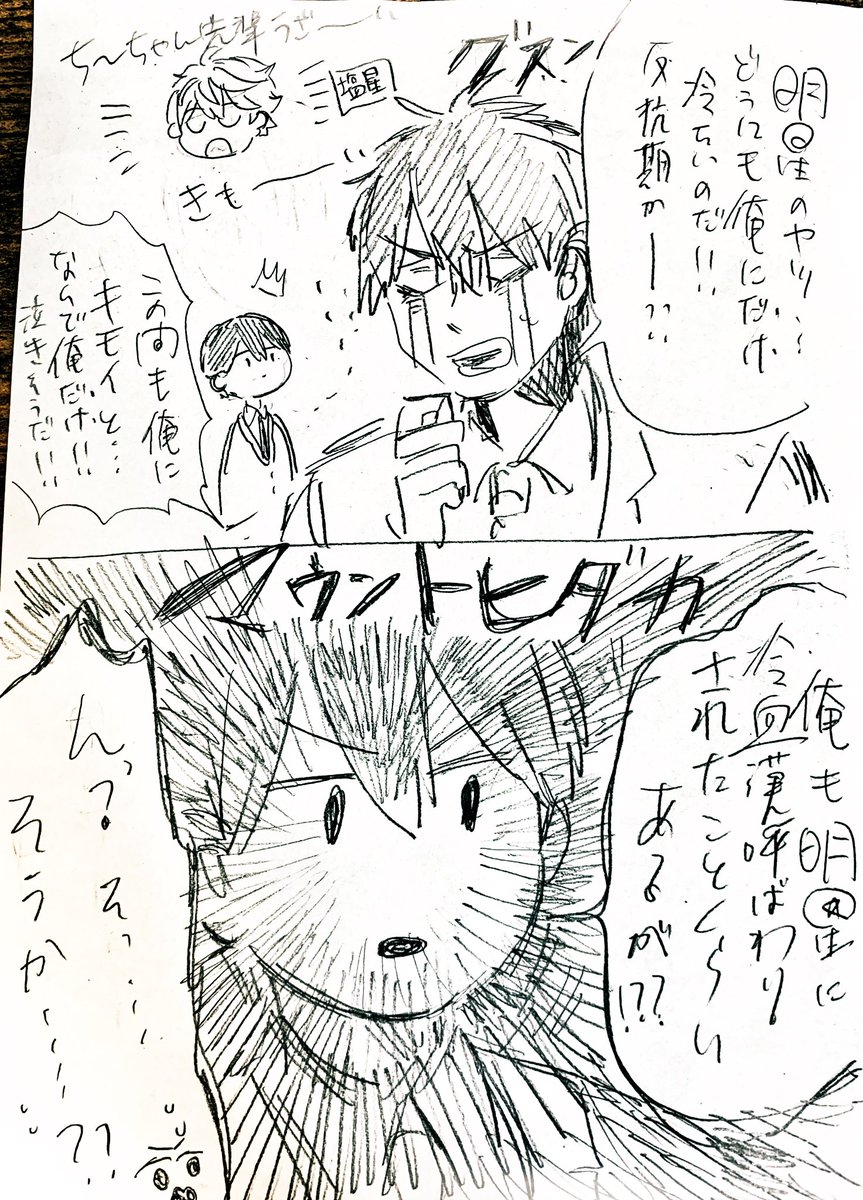 明星のヤツ…
どうにも俺にだけ
冷たいのだ!!
反抗期かー??
グスン
ちーちゃん先輩うざ〜
塩星
きもー
この間も俺に
キモイと…
なんで俺だけ!!
泣きそうだ!!
マウントヒダカ
俺も明星に
冷血漢呼ばわり
されたことくらい
あるが!?
んっ?そっ…
そうか…??